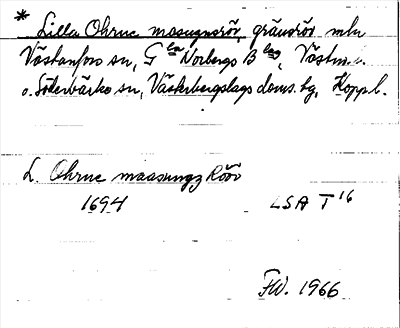 * Lilla Ohrne masugnsrör, gränsrör mln
Västanfors sn, G^la Norbergs B^lag, Västm.l.
o. Söderbärke sn, Västerbergslags doms. hg, Kopp.l.
L. Ohrne maasungz Röör
1694 LSA T^16
FW. 1966